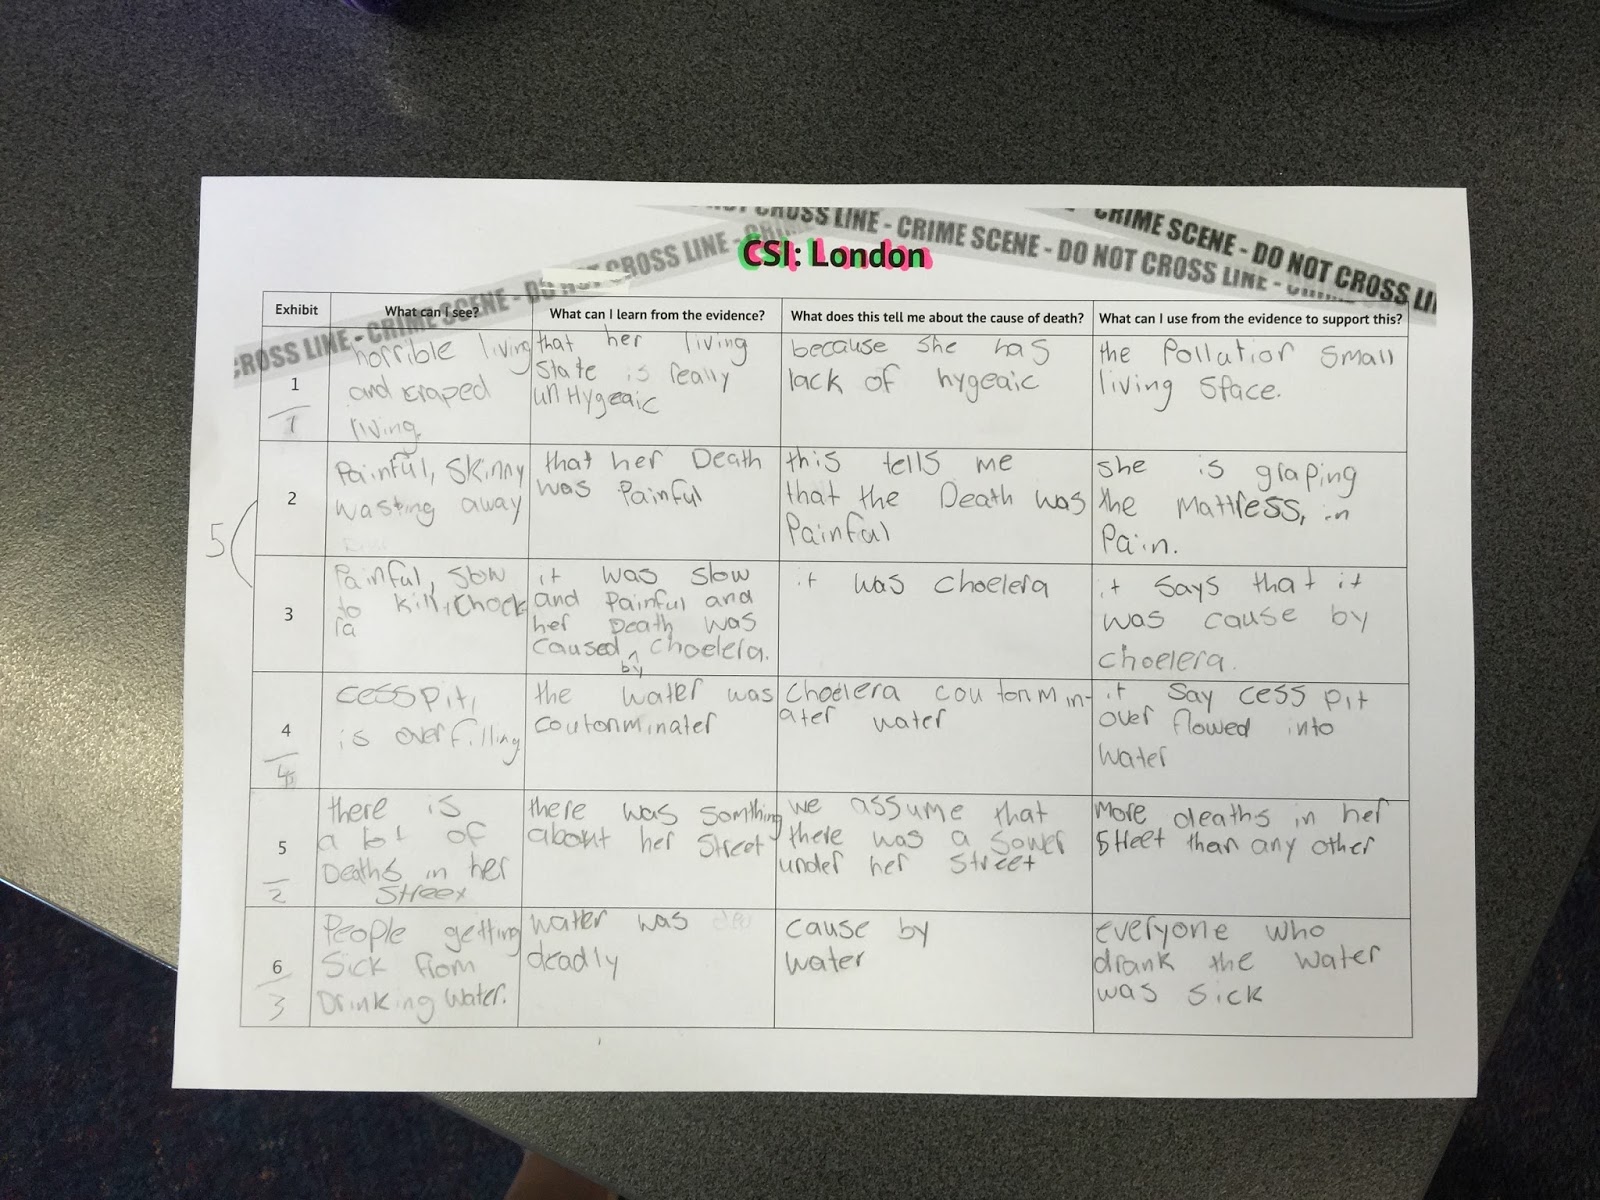 NOT CROSS LINE - CRIME SCENE - DO NOT CROSS LINE -
CRIME SCENE - DO NOT CROSS LI
CROSS LINE - CRIME SCENE - DO NOT CROSS LINE -
CSI: London
Exhibit
What can I see?
What can I learn from the evidence?
What does this tell me about the cause of death?
What can I use from the evidence to support this?
1
1
horrible living
and craped
living
that her living
state is really
unHygeaic
because she has
lack of hygeaic
the Pollution small
living space.
5
2
Painful, Skinny
wasting away
that her Death
was Painful
this tells me
that the Death was
Painful
she is graping
the mattress, in
Pain.
3
Painful, slow
to kill, choelera
it was slow
and Painful and
her Death was
caused by choelera.
it was choelera
it says that it
was cause by
choelera.
4
4
cess pit,
is over filling
the water was
coutonminater
choelera coutonmin-
ater water
it say cess pit
over flowed into
water
5
2
there is
a lot of
Deaths in her
Street
there was somthing
about her street
we assume that
there was a sower
under her street
More deaths in her
street than any other
6
3
People getting
sick from
Drinking water.
water was
deadly
cause by
water
everyone who
drank the water
was sick